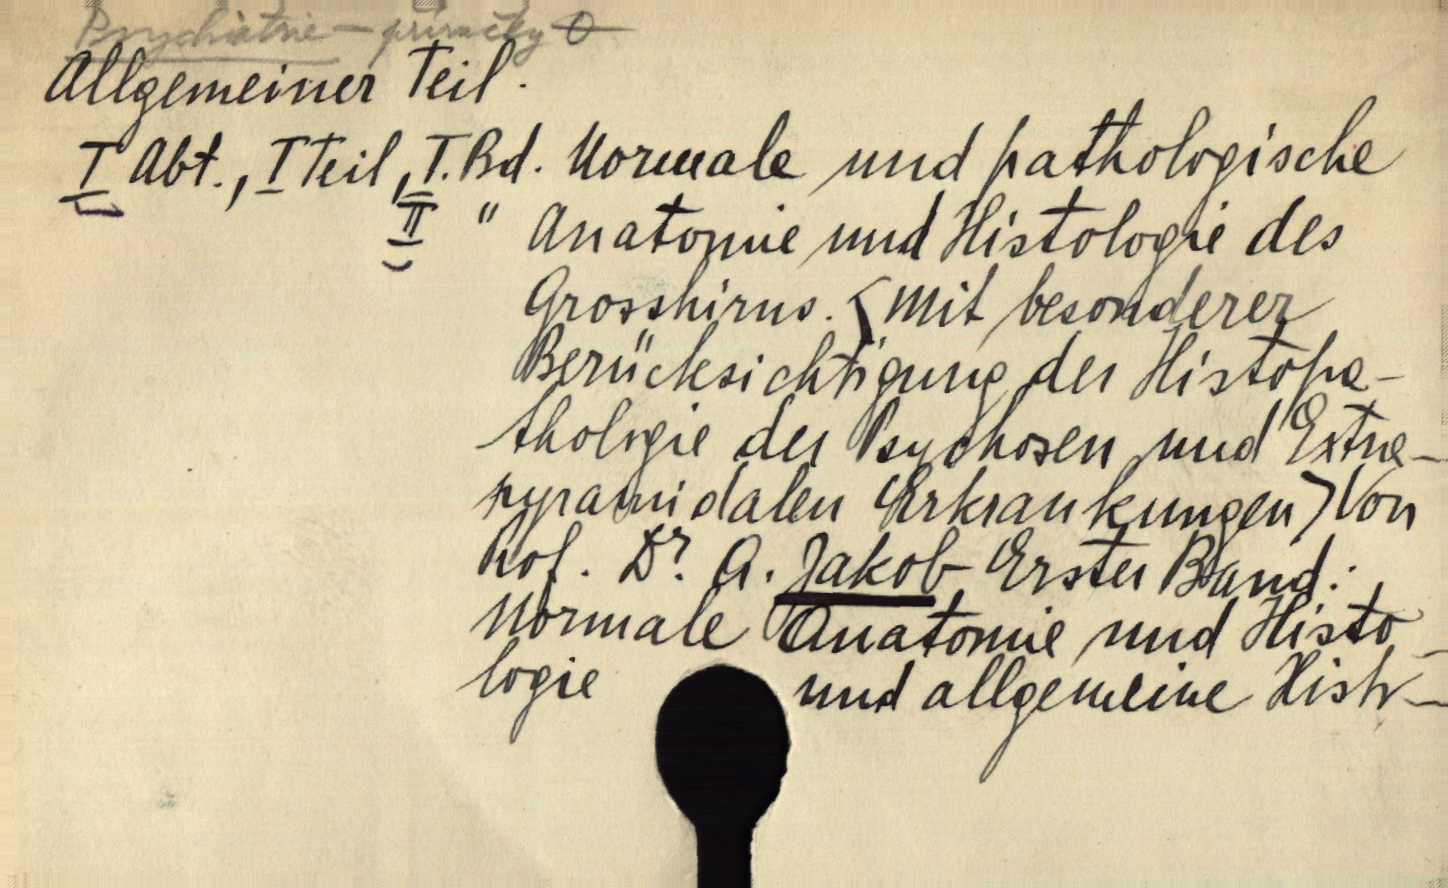 Psychiatrie - příručky
Allgemeiner Teil.
I Abt., I Teil, I. Bd. Normale und pathologische
II " Anatomie und Histologie des
Grosshirns. (Mit besonderer
Berücksichtigung der Histopa-
thologie der Psychosen und Extra-
pyramidalen Erkrankungen) Von
Prof. Dr. A. Jakob Erster Band:
Normale Anatomie und Histo-
logie und allgemeine Histo-